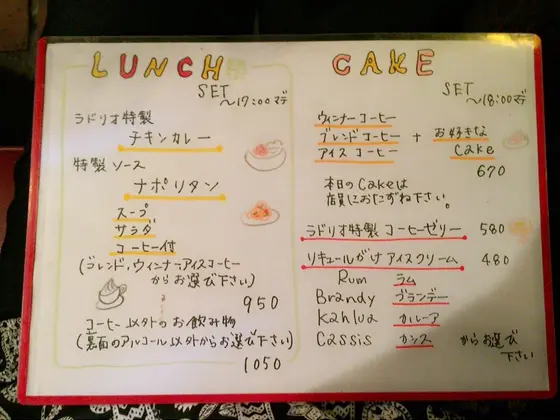 LUNCH
SET
～17:00マデ
ラドリオ特製
チキンカレー
特製ソース
ナポリタン
スープ
サラダ
コーヒー付
(ブレンド、ウィンナー、アイスコーヒー
からお選び下さい)
950
コーヒー以外のお飲み物
(裏面のアルコール以外からお選び下さい)
1050
CAKE
SET
～18:00マデ
ウィンナーコーヒー
ブレンドコーヒー + お好きな
アイスコーヒー Cake
670
本日のCakeは
店員におたずね下さい。
ラドリオ特製コーヒーゼリー 580
リキュールがけアイスクリーム 480
Rum ラム
Brandy ブランデー
Kahlua カルーア
Cassis カシス からお選び
下さい